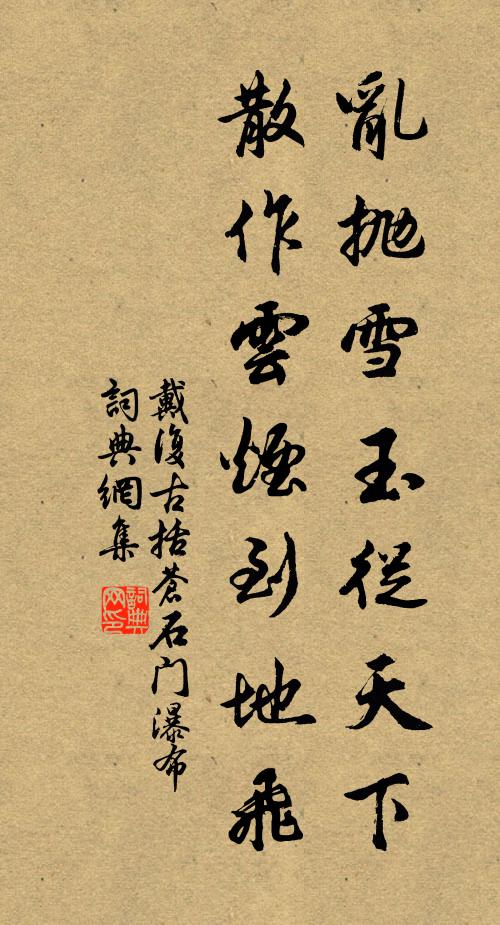 亂拋雪玉從天下
散作雲煙到地飛
戴復古括蒼石门瀑布
詞典網集
詞典网印